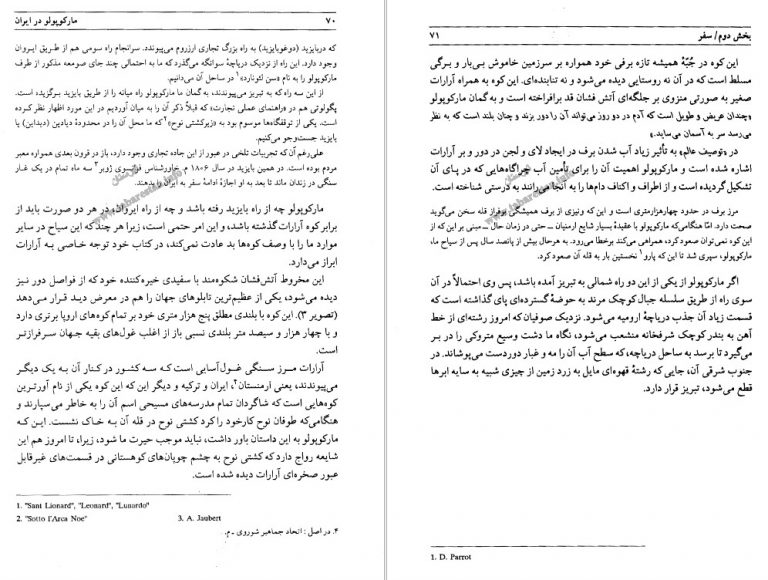 مارکوپولو در ایران
۷۰
که دربایزید (دوغوبایزید) به راه بزرگ تجاری ارزروم می‌پیوندد. سرانجام راه سومی هم از طریق ایروان
وجود دارد. این راه از نزدیک دریاچهٔ سوانگه می‌گذرد که ما به احتمالی چند جای صومعه مذکور از طرف
مارکوپولو را به نام «سن لئونارد»۱ در ساحل آن می‌دانیم.
از این سه راه که به تبریز می‌پیوندند، به گمان ما مارکوپولو راه میانه را از طریق بایزید برگزیده است.
پگولوتی هم در «راهنمای عملی تجارت» که قبلاً ذکر آن را به میان آوردیم در این مورد اظهار نظر کرده
است. یکی از توقفگاه‌ها موسوم بود به «زیرکشتی نوح»۲ که ما محل آن را در محدودهٔ دیادین (دیداین) یا
بایزید جست‌وجو می‌کنیم.
علی‌رغم آن که تجربیات تلخی در عبور از این جاده تجاری وجود دارد، باز در قرون بعدی همواره معبر
مردم بوده است. در همین بایزید در سال ۱۸۰۶ م. خاورشناس فرانسوی ژوبر۳ سه ماه تمام در یک غار
سنگی در زندان ماند تا بعد به او اجازهٔ ادامهٔ سفر به ایران را بدهند.
مارکوپولو چه از راه بایزید رفته باشد و چه از راه ایروان، در هر دو صورت باید از
برابر کوه آرارات گذشته باشد، و این امر حتمی است، زیرا هر چند که این سیاح در سایر
موارد ما را با وصف کوه‌ها بد عادت نمی‌کند، در کتاب خود توجه خاصی به آرارات
ابراز می‌دارد.
این مخروط آتش‌فشان شکوه‌مند با سفیدی خیره‌کننده خود که از فواصل دور نیز
دیده می‌شود، یکی از عظیم‌ترین تابلوهای جهان را هم در معرض دید قرار می‌دهد
(تصویر ۳). این کوه با بلندی مطلق پنج هزار متری خود بر تمام کوه‌های اروپا برتری دارد
و با چهار هزار و سیصد متر بلندی نسبی باز از اغلب غول‌های بقیه جهان سرفرازتر
است.
آرارات مرز سنگی غول‌آسایی است که سه کشور در کنار آن به یک دیگر
می‌پیوندند، یعنی ارمنستان۴، ایران و ترکیه و دیگر این که این کوه یکی از نام آورترین
کوه‌هایی است که شاگردان تمام مدرسه‌های مسیحی اسم آن را به خاطر می‌سپارند و
هنگامی‌که طوفان نوح کارخود را کرد کشتی نوح در قله آن به خاک نشست. این که
مارکوپولو به این داستان باور داشت، نباید موجب حیرت ما شود، زیرا، تا امروز هم این
شایعه رواج دارد که کشتی نوح به چشم چوپان‌های کوهستانی در قسمت‌های غیرقابل
عبور صخره‌ای آرارات دیده شده است.
1. "Sant Lionard", "Leonard", "Lunardo"
2. "Sotto l'Arca Noe" 3. A. Jaubert
۴. در اصل : اتحاد جماهیر شوروی ـ م.
بخش دوم / سفر
۷۱
این کوه در جُبّهٔ همیشه تازه برفی خود همواره بر سرزمین خاموش بی‌بار و برگی
مسلط است که در آن نه روستایی دیده می‌شود و نه تنابنده‌ای. این کوه به همراه آرارات
صغیر به صورتی منزوی بر جلگه‌ای آتش فشان قد برافراخته است و به گمان مارکوپولو
«چندان عریض و طویل است که آدم در دو روز می‌تواند آن را دور بزند و چنان بلند است که به نظر
می‌رسد سر به آسمان می‌ساید.»
در «توصیف عالم» به تأثیر زیاد آب شدن برف در ایجاد لای و لجن در دور و بر آرارات
اشاره شده است و مارکوپولو اهمیت آن را برای تأمین آب چراگاه‌هایی که در پای آن
تشکیل گردیده است و از اطراف و اکناف دام‌ها را به آنجا می‌رانند به درستی شناخته است.
مرز برف در حدود چهارهزارمتری است و این که ونیزی از برف همیشگی برفراز قله سخن می‌گوید
صحت دارد. امّا هنگامی‌که مارکوپولو با عقیدهٔ بسیار شایع ارمنیان ـ حتی در زمان حال ـ مبنی بر این که از
این کوه نمی‌توان صعود کرد، همراهی می‌کند برخطا می‌رود. به هرحال بیش از پانصد سال پس از سیاح ما،
مارکوپولو، سپری شد تا این که پارو۱ نخستین بار به قله آن صعود کرد.
اگر مارکوپولو از یکی از این دو راه شمالی به تبریز آمده باشد، پس وی احتمالاً در آن
سوی راه از طریق سلسله جبال کوچک مرند به حوضهٔ گسترده‌ای پای گذاشته است که
قسمت زیاد آن جذب دریاچهٔ ارومیه می‌شود. نزدیک صوفیان که امروز رشته‌ای از خط
آهن به بندر کوچک شرفخانه منشعب می‌شود، نگاه ما دشت وسیع متروکی را در بر
می‌گیرد تا برسد به ساحل دریاچه، که سطح آب آن را مه و غبار دوردست می‌پوشاند. در
جنوب شرقی آن، جایی که رشتهٔ قهوه‌ای مایل به زرد زمین از چیزی شبیه به سایه ابرها
قطع می‌شود، تبریز قرار دارد.
1. D. Parrot